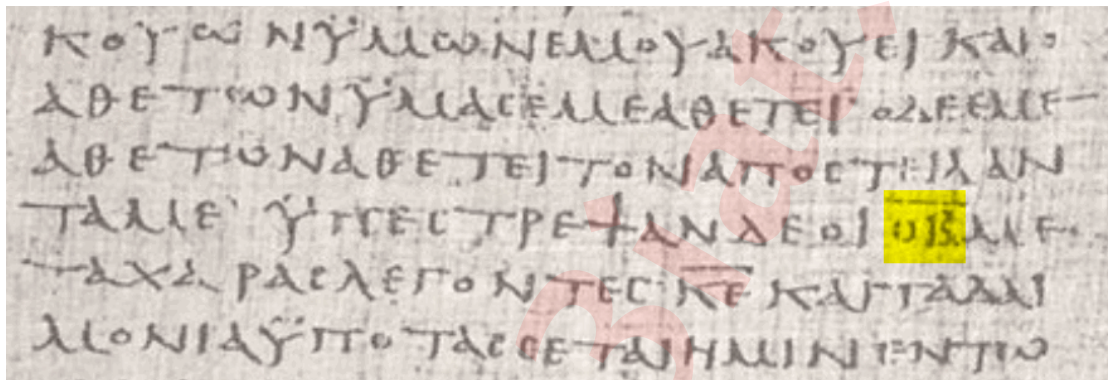 ΚΟΥΩΝΫΜΩΝΕΜΟΥΑΚΟΥΕΙΚΑΙΟ
ΑΘΕΤΩΝΫΜΑϹΕΜΕΑΘΕΤΕΙ· ΟΔΕΕΜΕ
ΑΘΕΤΩΝΑΘΕΤΕΙΤΟΝΑΠΟϹΤΕΙΛΑΝ
ΤΑΜΕ· ΫΠΕϹΤΡΕΨΑΝΔΕΟΙΟ̅Β̅ΜΕ
ΤΑΧΑΡΑϹΛΕΓΟΝΤΕϹ· Κ̅Ε̅ ΚΑΙΤΑΔΑΙ
ΜΟΝΙΑΫΠΟΤΑϹϹΕΤΑΙΗΜΙΝΕΝΤΩ